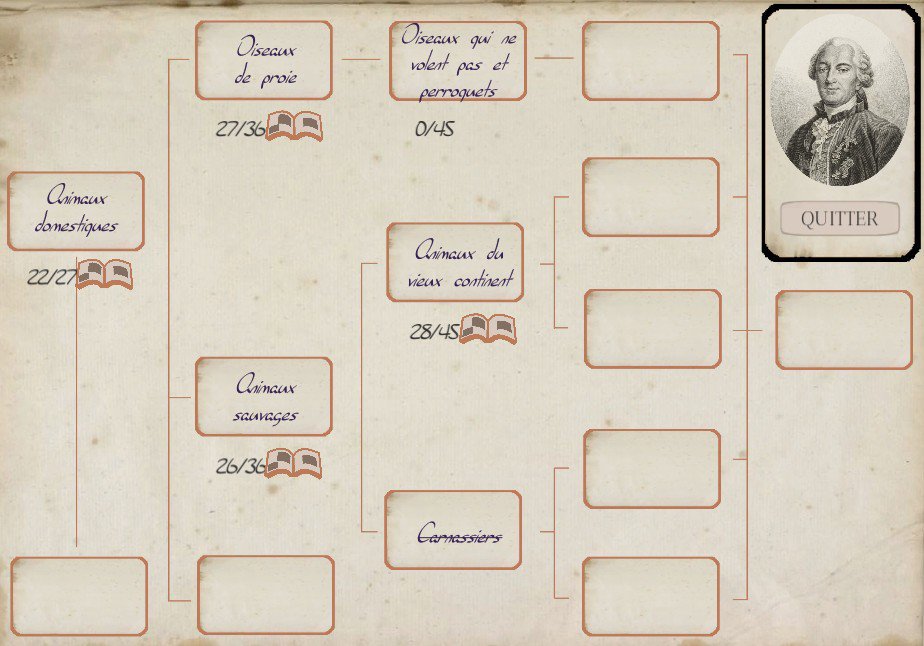 Oiseaux
de proie
27/36
Oiseaux qui ne
volent pas et
perroquets
0/45
QUITTER
Animaux
domestiques
22/27
Animaux du
vieux continent
28/45
Animaux
sauvages
26/36
Carnassiers